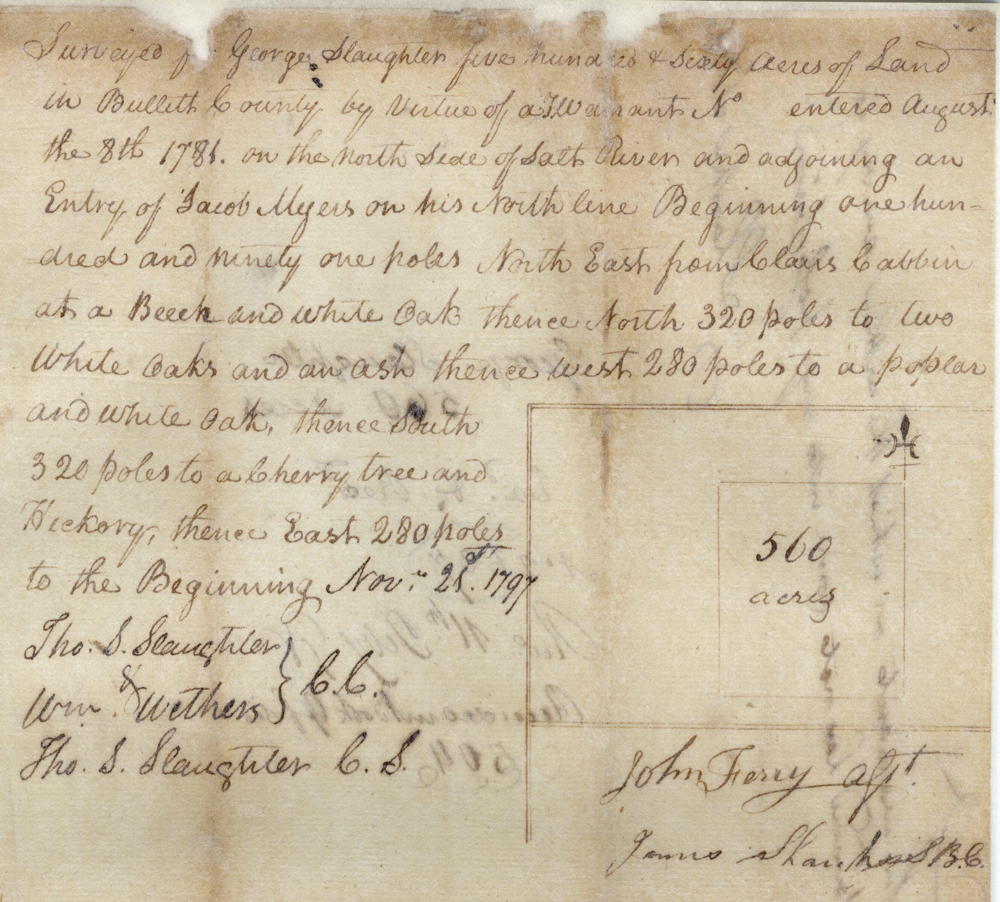 Surveyed for George Slaughter five hundred & Sixty Acres of Land
in Bullitt County by Virtue of a T. Warrant No entered August
the 8th 1781. on the north Side of Salt River and adjoining an
Entry of Jacob Myers on his North line Beginning one hun-
dred and ninety one poles North East from Clairs Cabbin
at a Beech and white Oak thence North 320 poles to two
White Oaks and an ash thence west 280 poles to a poplar
and white Oak, thence South
320 poles to a Cherry tree and
Hickory, thence East 280 poles
to the Beginning Novr. 21st. 1797
Tho. S. Slaughter
& } C.C.
Wm. Wethers
Tho. S. Slaughter C. S.
560
acres
John Ferry asst.
James S.B.C.